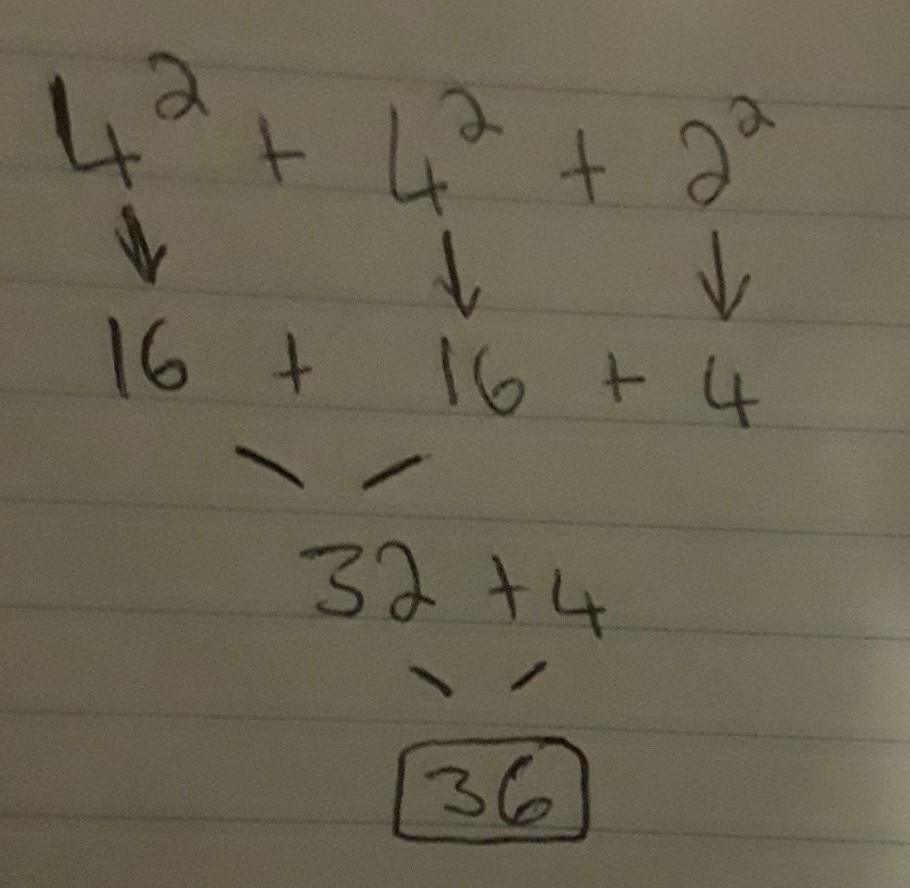 4² + 4² + 2²
16 + 16 + 4
32 + 4
36